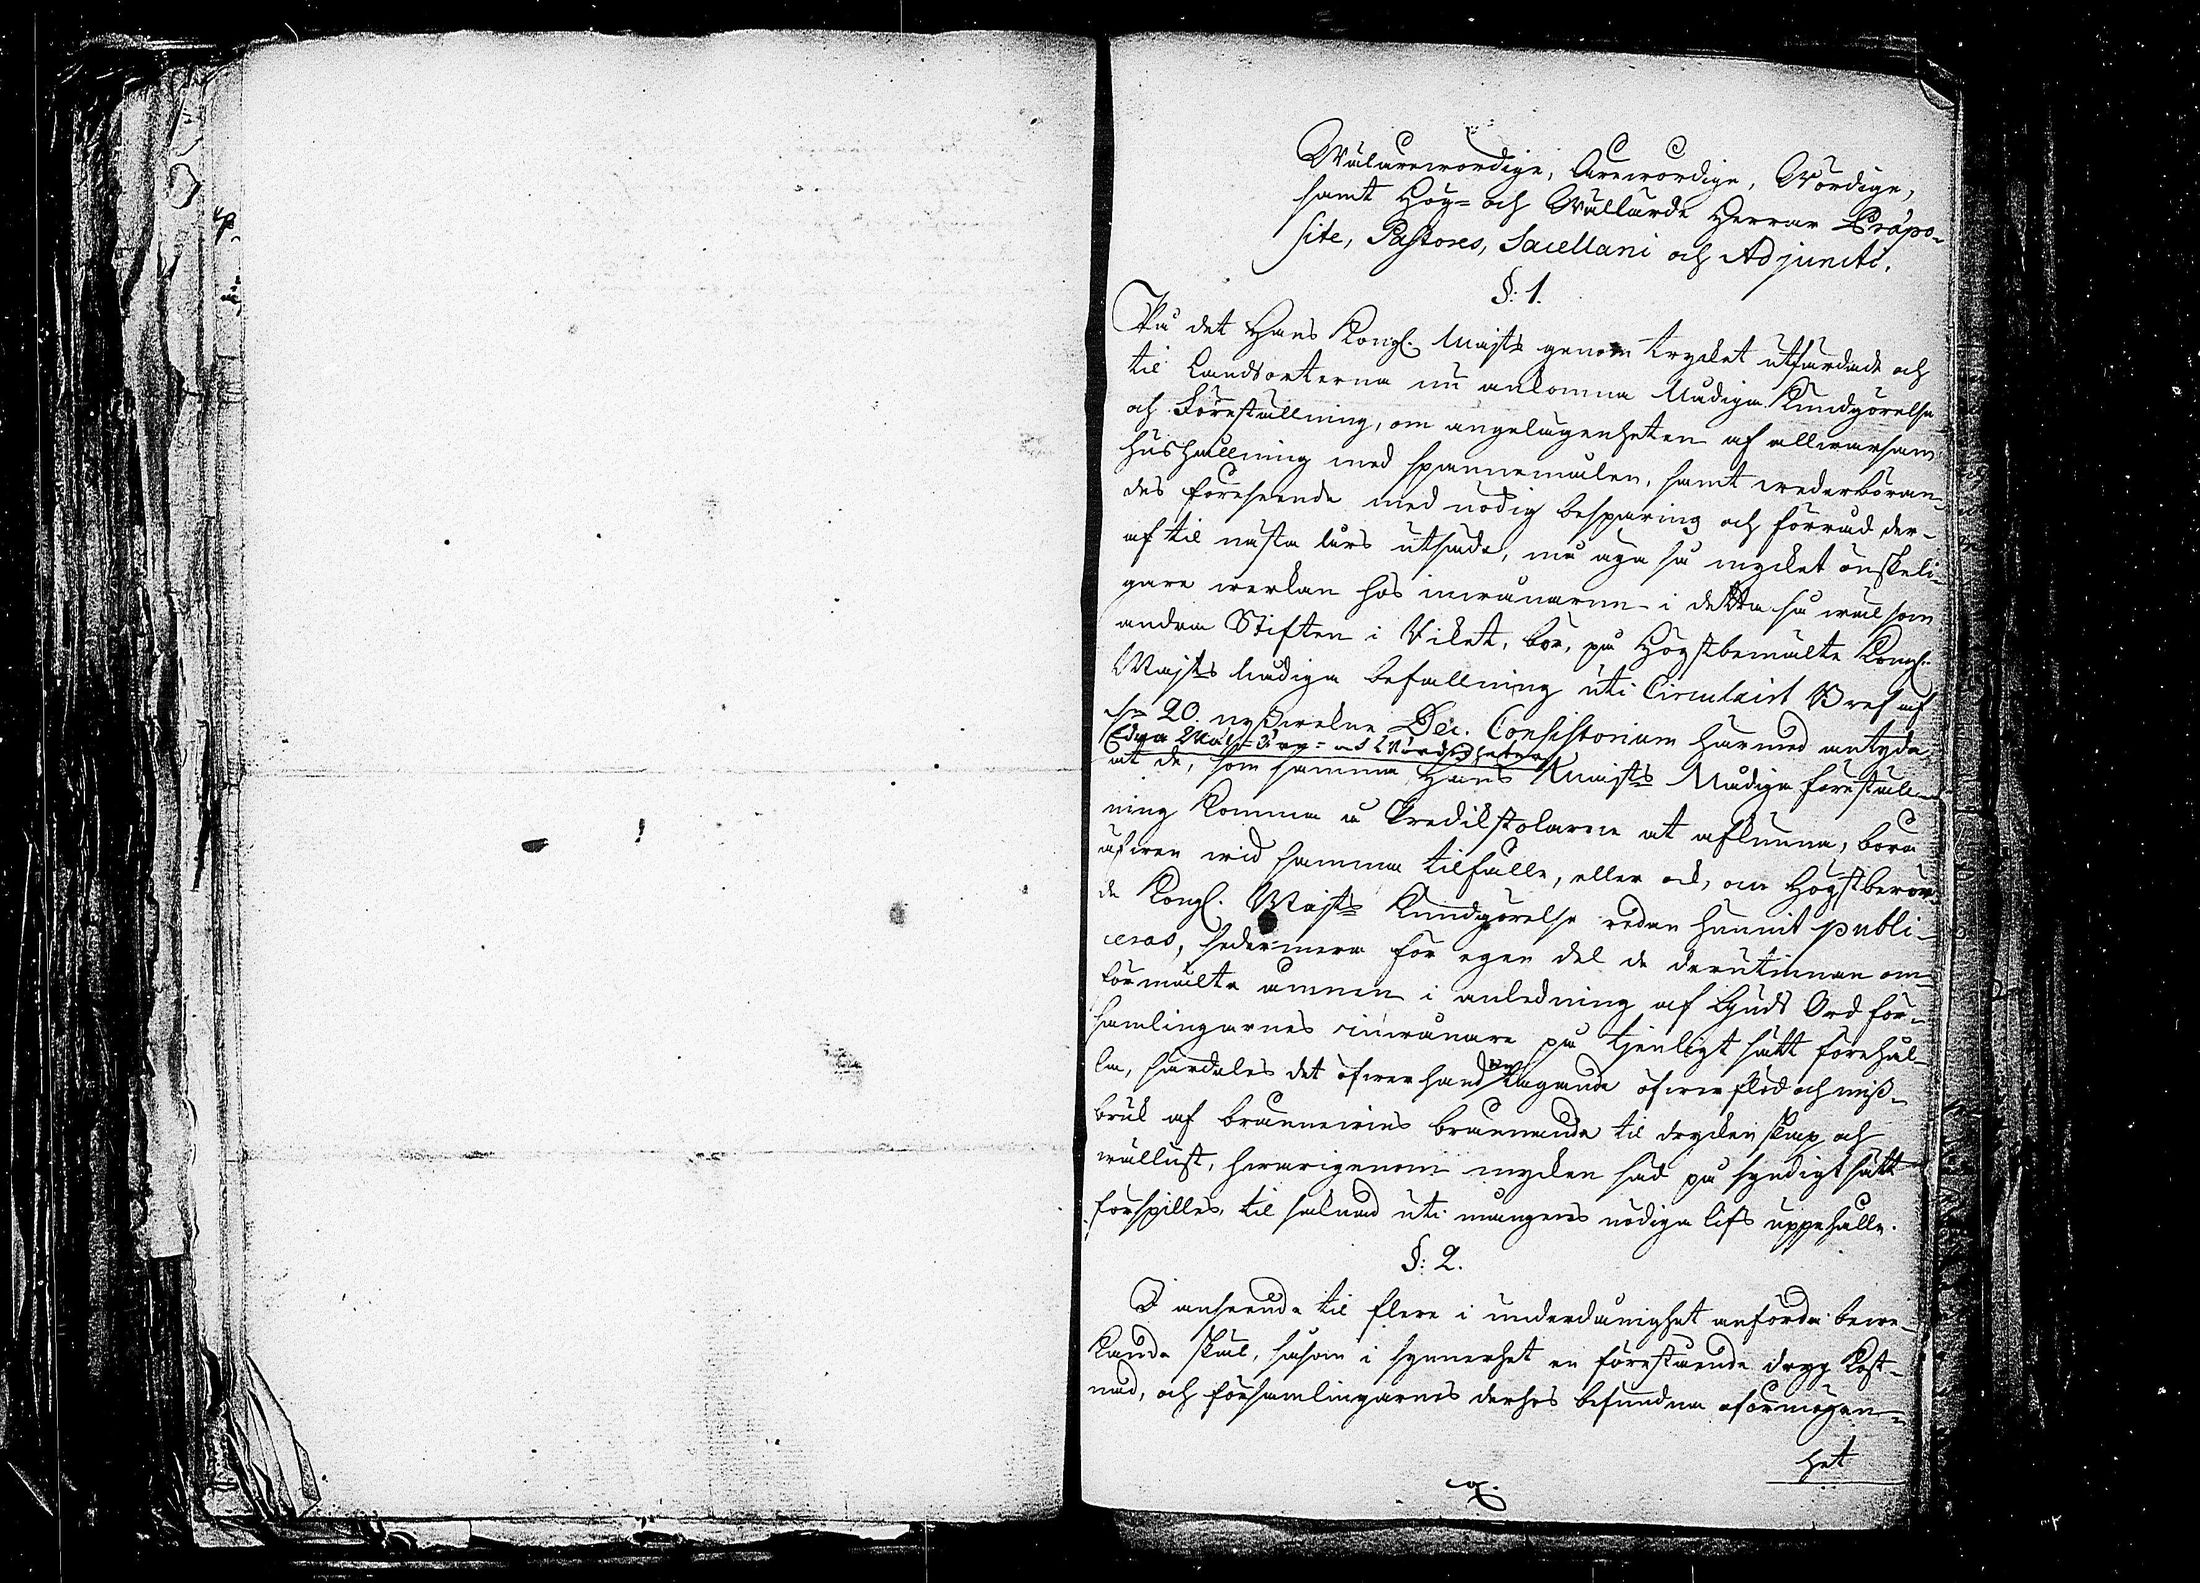 Wälärewördige, Ärewördige, Wördige,
samt Hög- och Wällärde Herrar Præpo-
site, Pastores, Sacellani och Adjuncti.
§: 1.
På det Hans Kongl. Majts genom trycket utfärdade och
til Landsorterna nu ankomna Nådiga Kundgörelse
och Föreställning, om angelägenheten af allwarsam
hushållning med spannemålen, samt wederböran-
des föreseende med nödig besparing och förråd der-
af til nästa års utsäde, må äga så mycket önskeli-
gare werkan hos inwånarne i detta så wäl som
andra Stiften i Riket, bör, på Högstbemälte Kongl.
Majts Nådiga befallning uti Circulairt Bref af
den 20. nystwekne Dec. Consistorium härmed antyda
Edra Wäl-Äre- och Wördigheter
at de, som samma Hans K Majts Nådiga föreställ-
ning komma å Predikstolarne at aflemna, böra
äfwen wid samma tilfälle, eller ock, om Högstberör-
de Kongl. Majts Kundgörelse redan hunnit publi-
ceras, sedermera för egen del de derutinnan om-
förmälte ämnen i anledning af Guds Ord för-
samlingarnes inwånare på tjenligt sätt förehål-
la, särdeles det öfwerhand tagande öfwerflöd och miss-
bruk af brännewins brännande til dryckenskap och
wällust, hwarigenom mycken säd på syndigt sätt
förspilles, til saknad uti mångens nödiga lifs uppehälle.
§: 2.
I anseende til flere i underdånighet anförda bewe-
kande skäl, såsom i synnerhet en förestående dryg kost-
nad, och församlingarnes derhos befundna oförmögen-
het